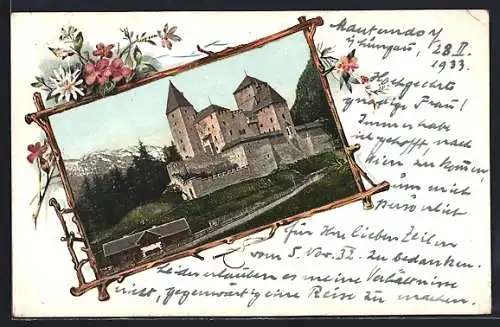 Mauterndorf
i/Lungau, 28.II.
1933.
Hochgeehrte
gnädige Frau!
Immer habe
ich gehofft, nach
Wien zu kommen,
um mich
persönlich
für Ihre lieben Zeilen
vom 5. Nov. 32. zu bedanken.
Leider erlauben es meine Verhältnisse
nicht, gegenwärtig eine Reise zu machen.